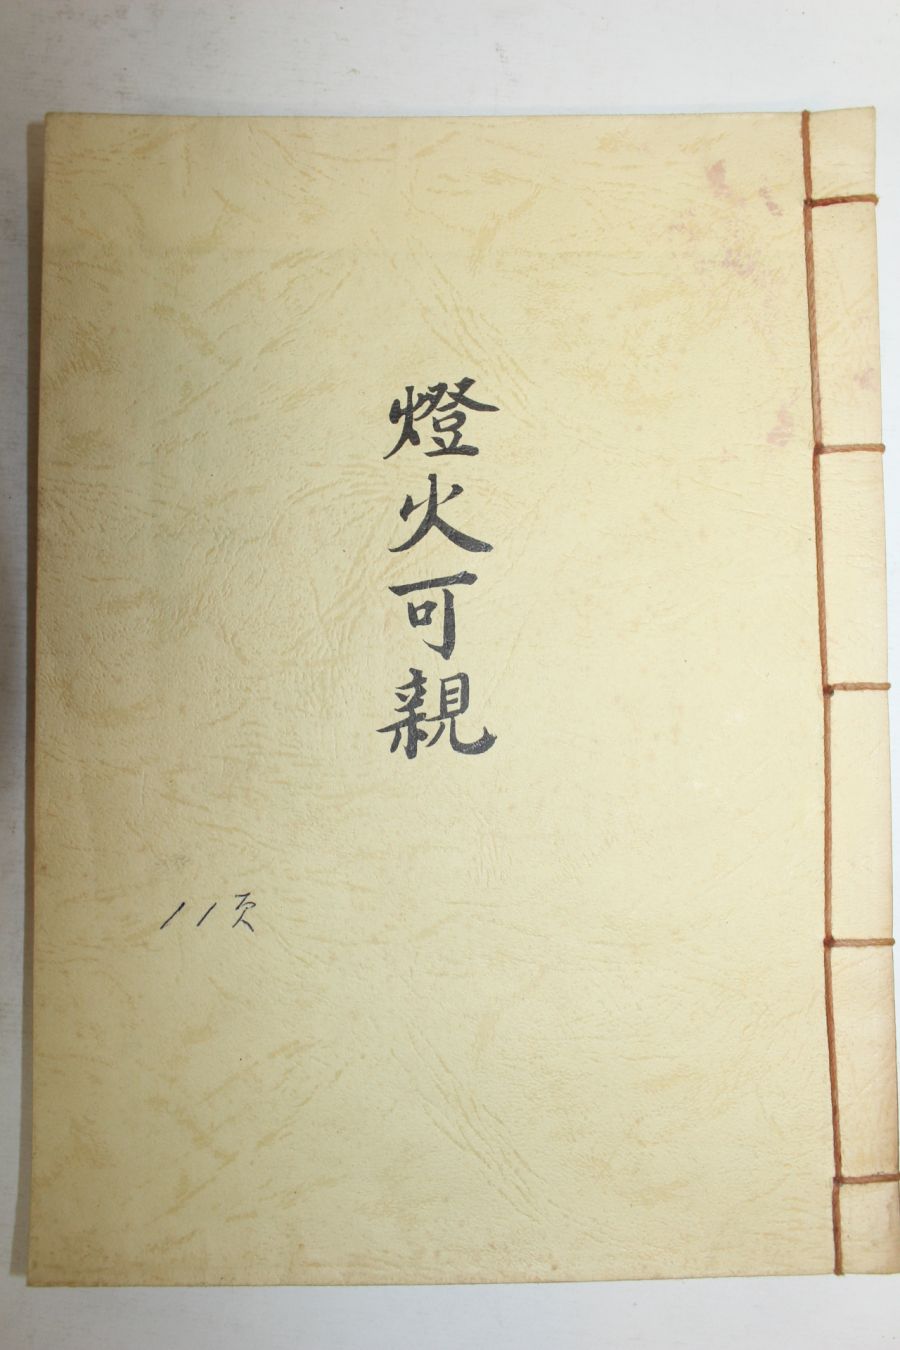 燈火可親
11頁